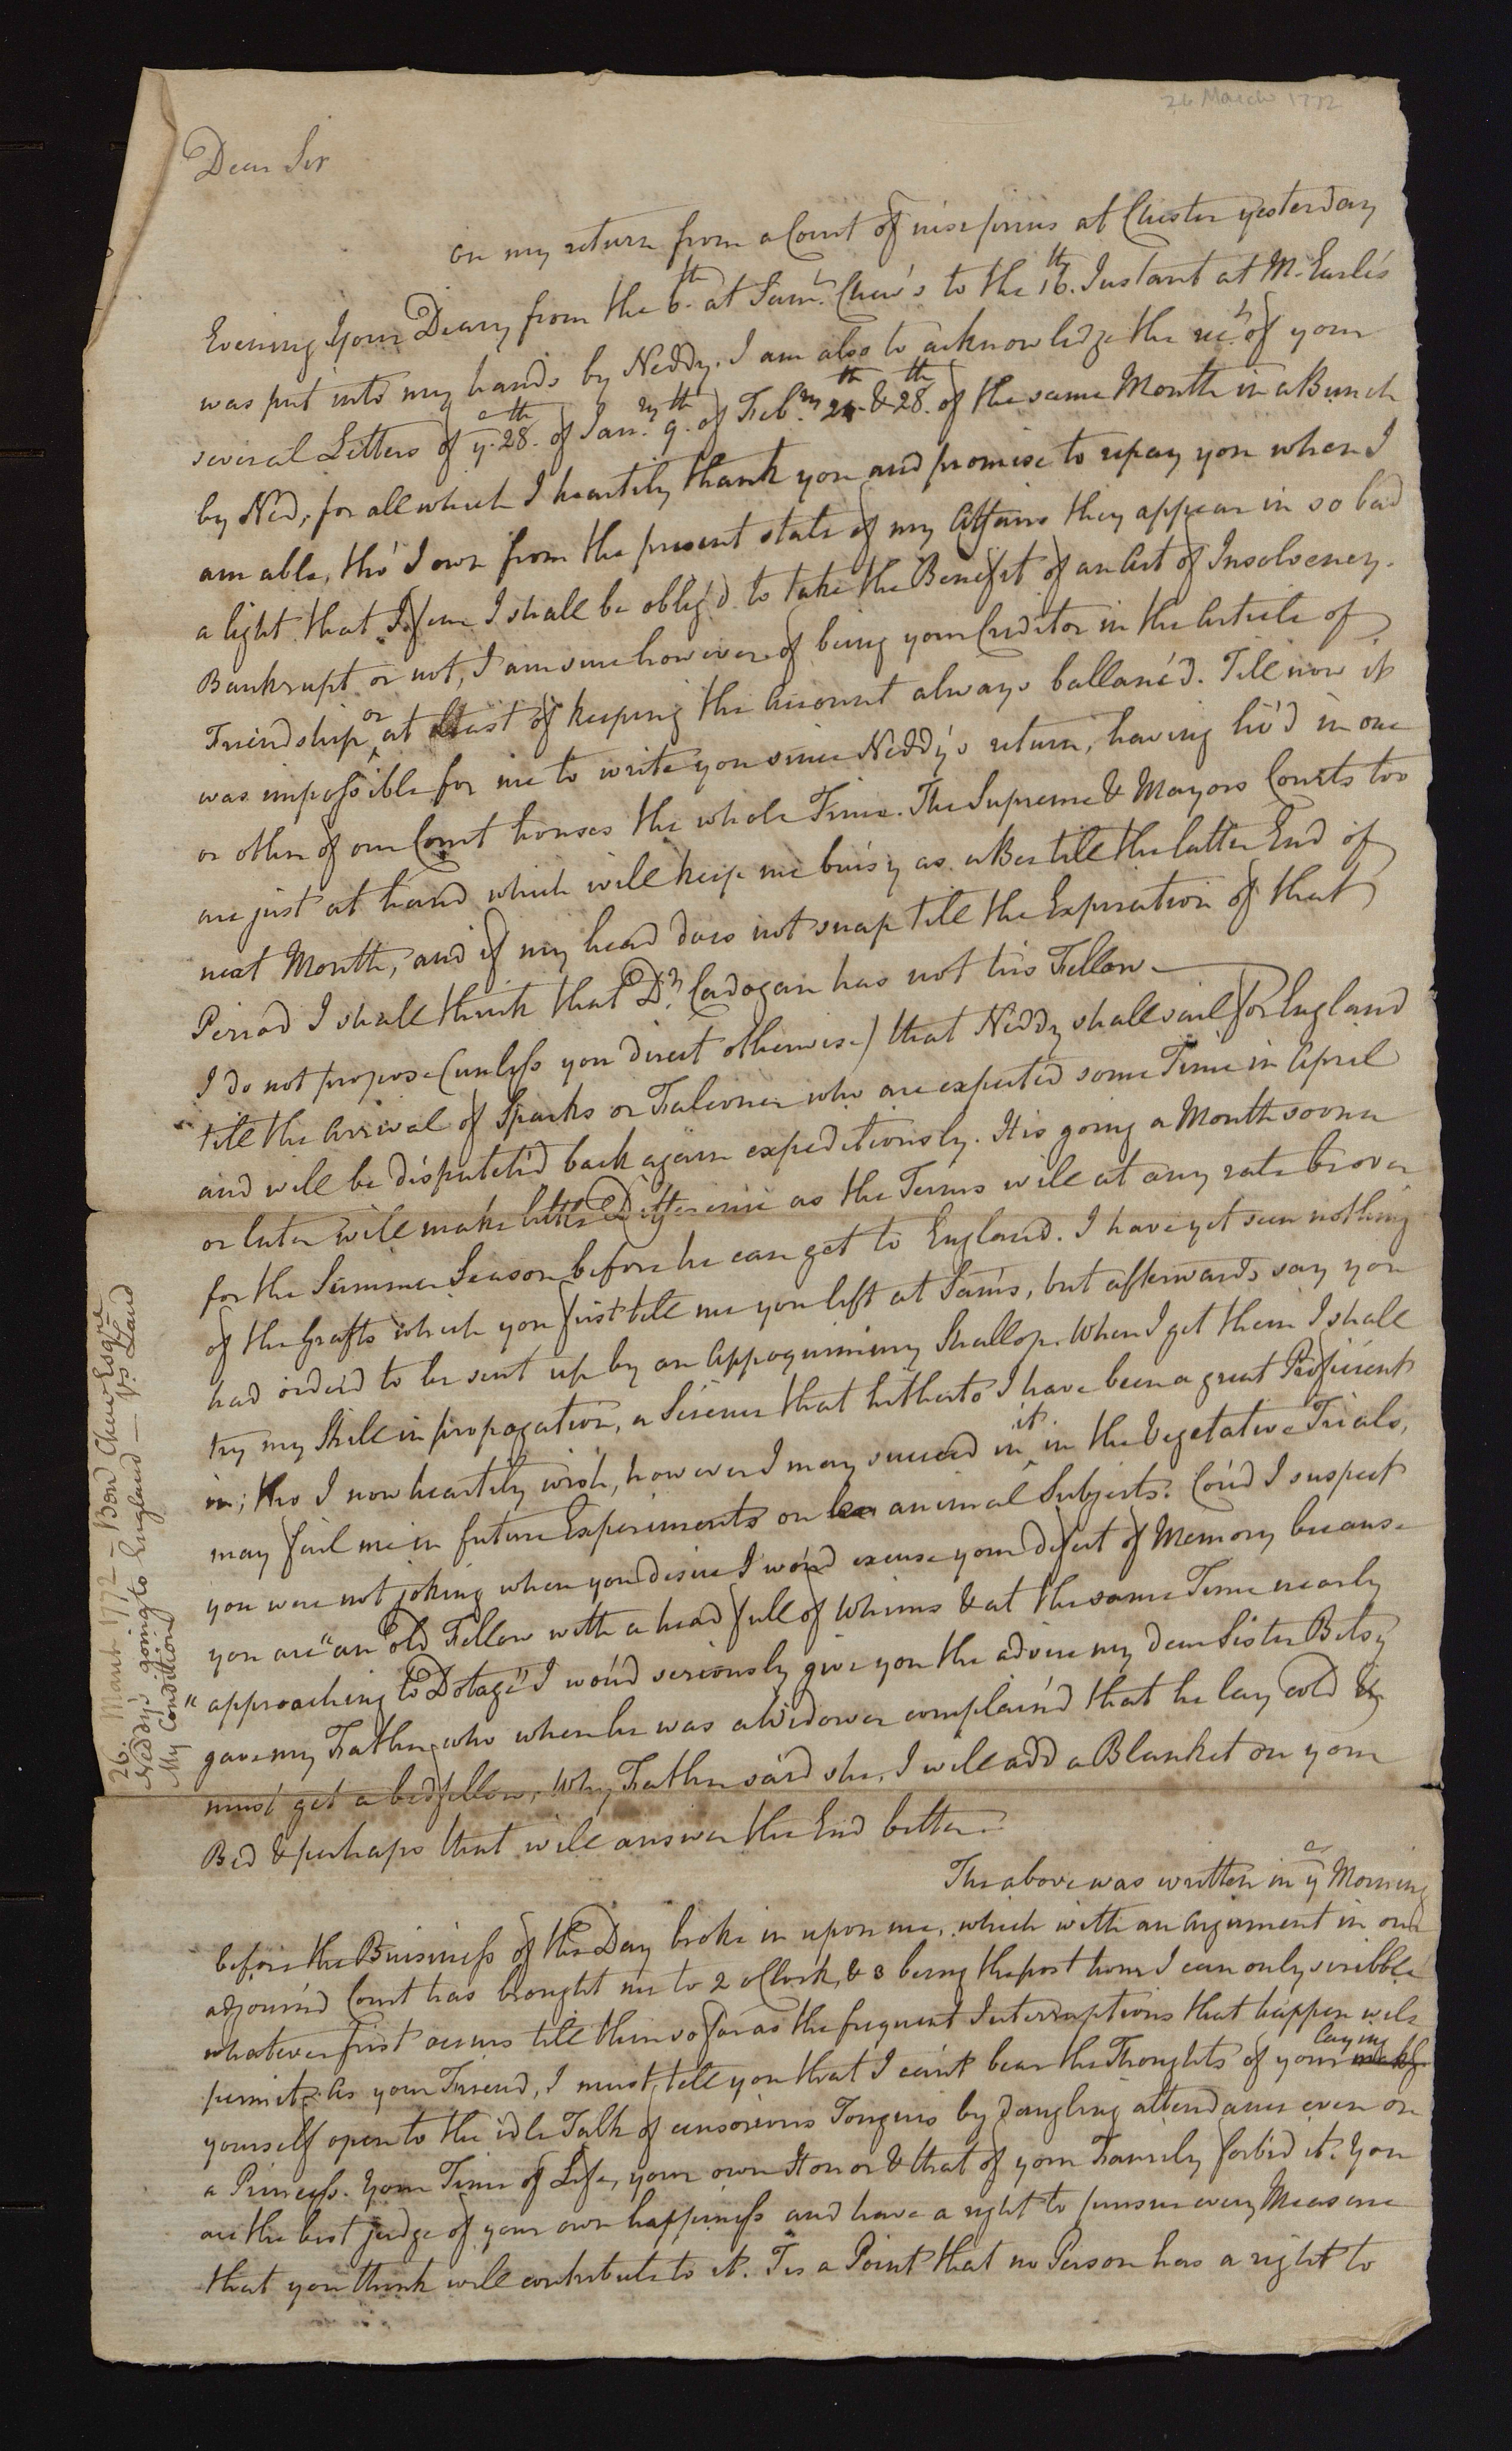 26 March 1772
Dear Sir
on my return from a Court of nisi prius at Chester yesterday
Evening Your Diary from the 6th. at Saml. Chew's to the 16th. Instant at Mr. Earle's
was put into my hands by Neddy. I am also to acknowledge the rect. of your
several Letters of ye. 28th. of Janry. 9th. of Febry. 24th. & 28th. of the same Month in a Bunch
by Ned, for all which I heartily thank you and promise to repay you when I
am able, tho' I own from the present state of my Affairs they appear in so bad
a light that I fear I shall be oblig'd to take the Benefit of an Act of Insolvency.
Bankrupt or not, I am sure however of being your Creditor in the Article of
Friendship or at least of keeping the Account always ballanc'd. Till now it
was impossible for me to write you since Neddy's return, having liv'd in one
or other of our Court houses the whole Time. The Supreme & Mayors Courts too
are just at hand which will keep me buisy as a Bee till the latter End of
next Month, and if my head does not snap till the Expiration of that
Period I shall think that Dr. Cadogan has not his Fellow.
I do not propose (unless you direct otherwise) that Neddy shall sail for England
till the Arrival of Sparks or Falconer who are expected some Time in April
and will be dispatch'd back again expeditiously. His going a Month sooner
or later will make little Difference as the Terms will at any rate be over
for the Summer Season before he can get to England. I have yet seen nothing
of the Grafts which you first tell me you left at Sam's, but afterwards say you
had order'd to be sent up by an Appoquinimy Shallop. When I get them I shall
try my Skill in propagation, a Science that hitherto I have been a great Proficient
in; tho I now heartily wish, however I may succeed in it in the Vegetative Trials,
may fail me in future Experiments on animal Subjects. Cou'd I suspect
you were not joking when you desire I wou'd excuse your defect of Memory because
you are "an old Fellow with a head full of Whims & at the same Time nearly
"approaching to Dotage" I wou'd seriously give you the advice my dear Sister Betsy
gave my Father, who when he was a Widower complain'd that he lay cold &
must get a bedfellow; Why, Father said she, I will add a Blanket on your
Bed & perhaps that will answer the End better.
The above was written in ye Morning
before the Buisiness of the Day broke in upon me, which with an Argument in our
adjourn'd Court has brought me to 2 oClock, & 3 being the post hour I can only scribble
whatever first occurs till then so far as the frequent Interruptions that happen will
permit. As your Friend, I must tell you that I can't bear the Thoughts of your laying
yourself open to the idle Talk of censorious Tongues by dangling attendance even on
a Princess. Your Time of Life, your own Honor & that of your Family forbid it. You
are the best judge of your own happiness and have a right to pursue every Measure
that you think will contribute to it. Tis a Point that no Person has a right to
26. March 1772 – Benn. Chew Esqre.
Neddy's going to England –
My Condition